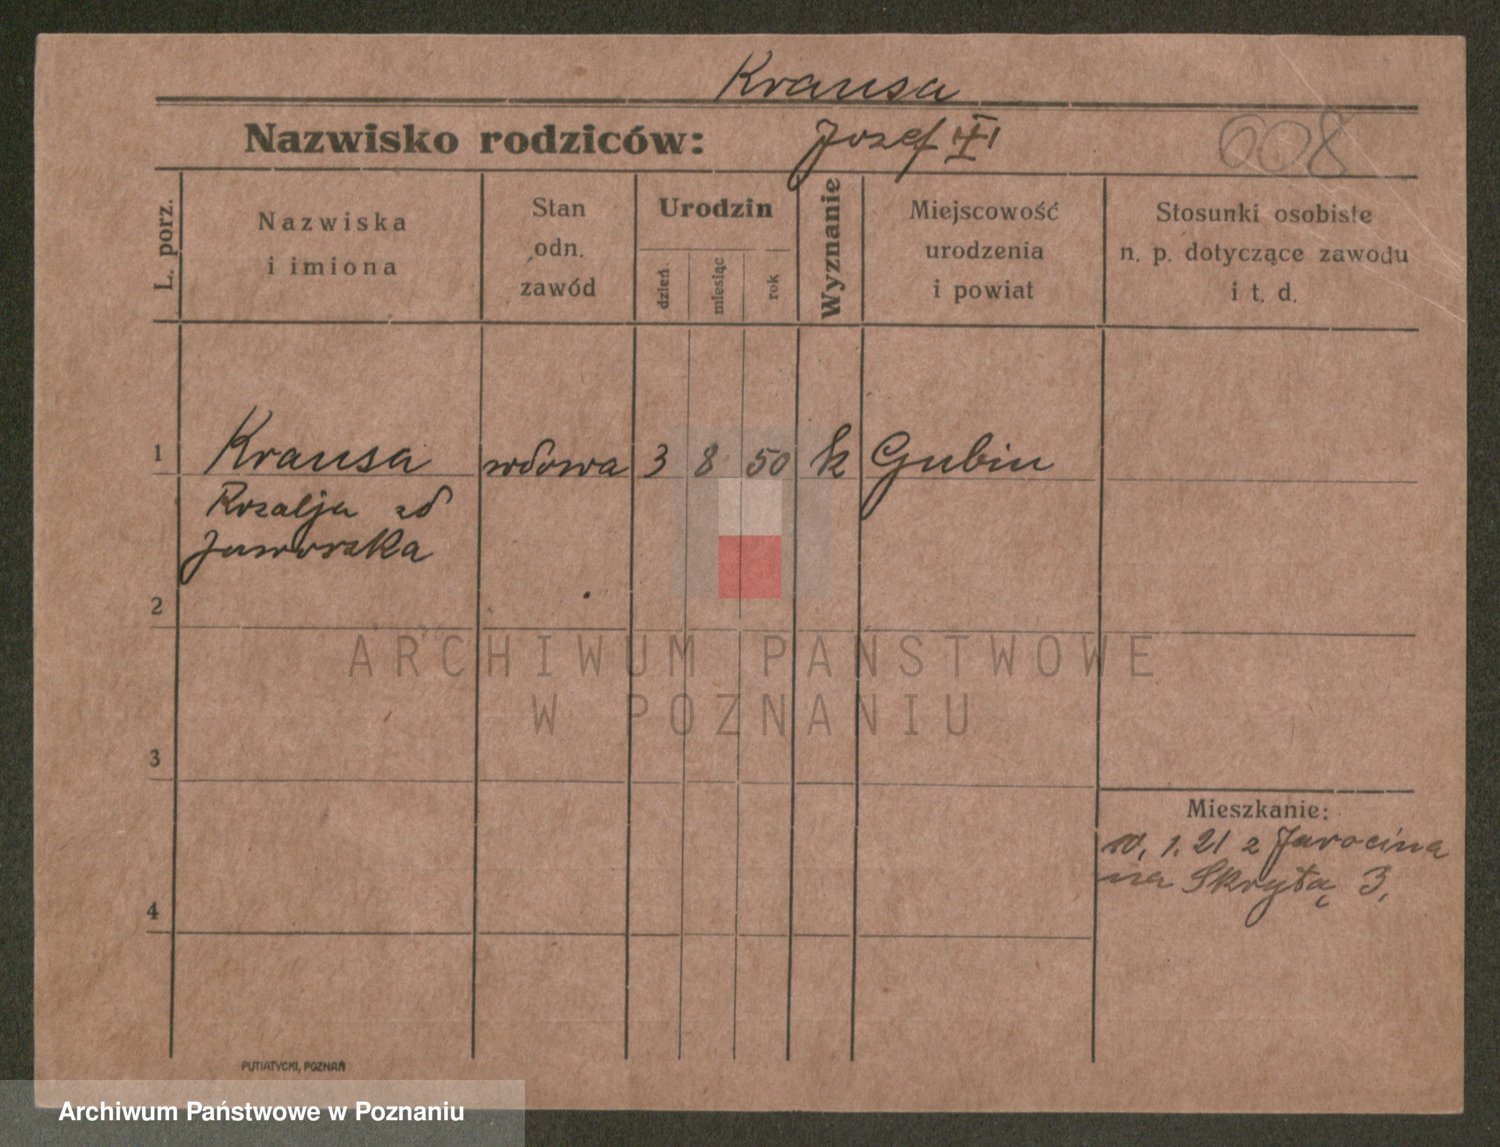 Krausa
Nazwisko rodziców: Jozef
608
L. porz.
Nazwiska
i imiona
Stan
odn.
zawód
Urodzin
dzień
miesiąc
rok
Wyznanie
Miejscowość
urodzenia
i powiat
Stosunki osobiste
n. p. dotyczące zawodu
i t. d.
1 Krausa wdowa 3 8 50 k Gubin
Rozalja zd
Jaworska
2
ARCHIWUM PAŃSTWOWE
W POZNANIU
3
Mieszkanie:
1. 21 z Jarocina
na Skrytą 3,
4
PUTIATYCKI, POZNAŃ
Archiwum Państwowe w Poznaniu